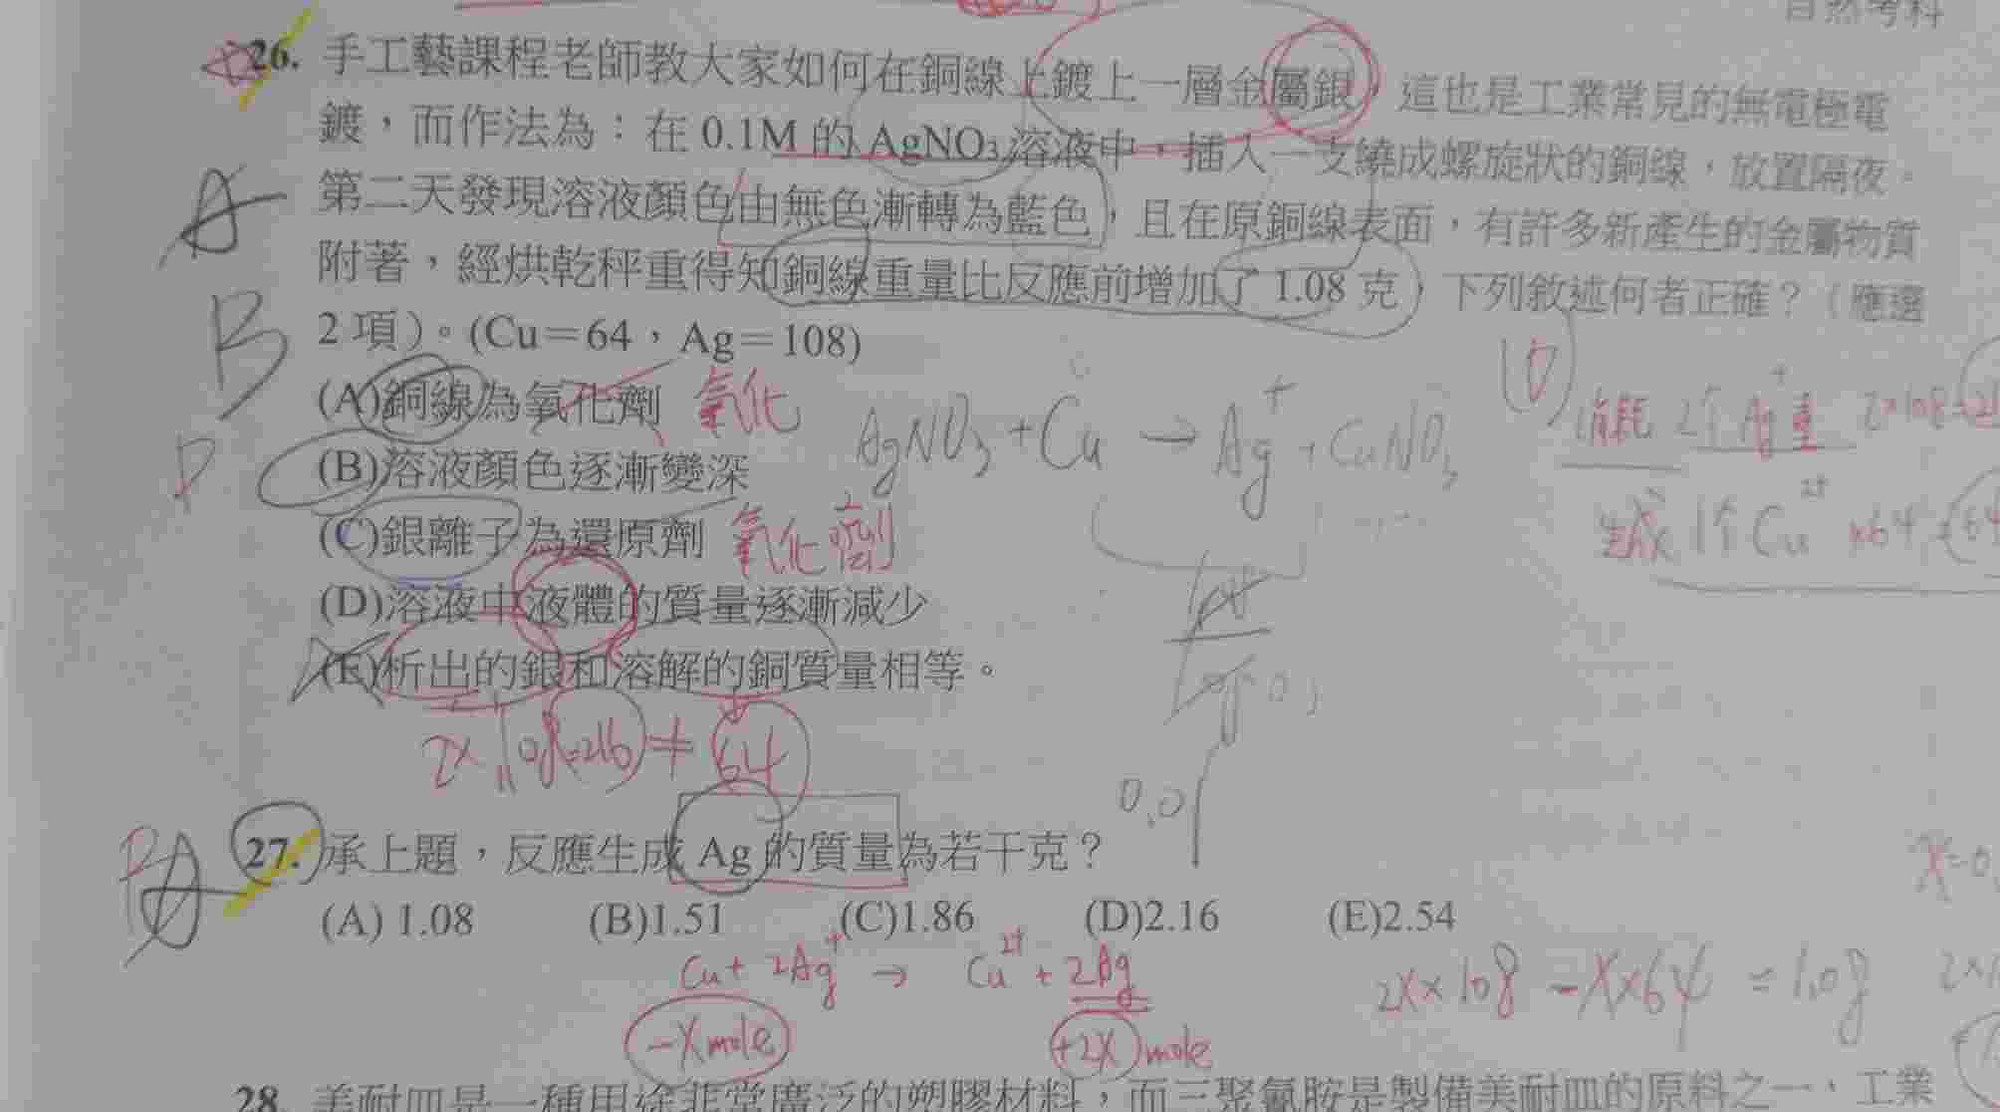 自然考科
26. 手工藝課程老師教大家如何在銅線上鍍上一層金屬銀，這也是工業常見的無電極電
鍍，而作法為：在 0.1M 的 AgNO₃ 溶液中，插入一支繞成螺旋狀的銅線，放置隔夜。
A
第二天發現溶液顏色由無色漸轉為藍色，且在原銅線表面，有許多新產生的金屬物質
附著，經烘乾秤重得知銅線重量比反應前增加了 1.08 克，下列敘述何者正確？（應選
B
2 項）。(Cu＝64，Ag＝108)
(A)銅線為氧化劑 氧化
AgNO₃ + Cu → Ag⁺ + CuNO₃
消耗 2个 Ag⁺重 2×108=21
D
(B)溶液顏色逐漸變深
(C)銀離子為還原劑 氧化劑
生成 1个 Cu²⁺ ×64=64
(D)溶液中液體的質量逐漸減少
(E)析出的銀和溶解的銅質量相等。
2×108=216 ≠ 64
0.01
27. 承上題，反應生成 Ag 的質量為若干克？
X=0.
(A) 1.08 (B)1.51 (C)1.86 (D)2.16 (E)2.54
Cu + 2Ag⁺ → Cu²⁺ + 2Ag
2X×108 − X×64 = 1.08
−X mole +2X mole
28. 美耐皿是一種用途非常廣泛的塑膠材料，而三聚氰胺是製備美耐皿的原料之一，工業